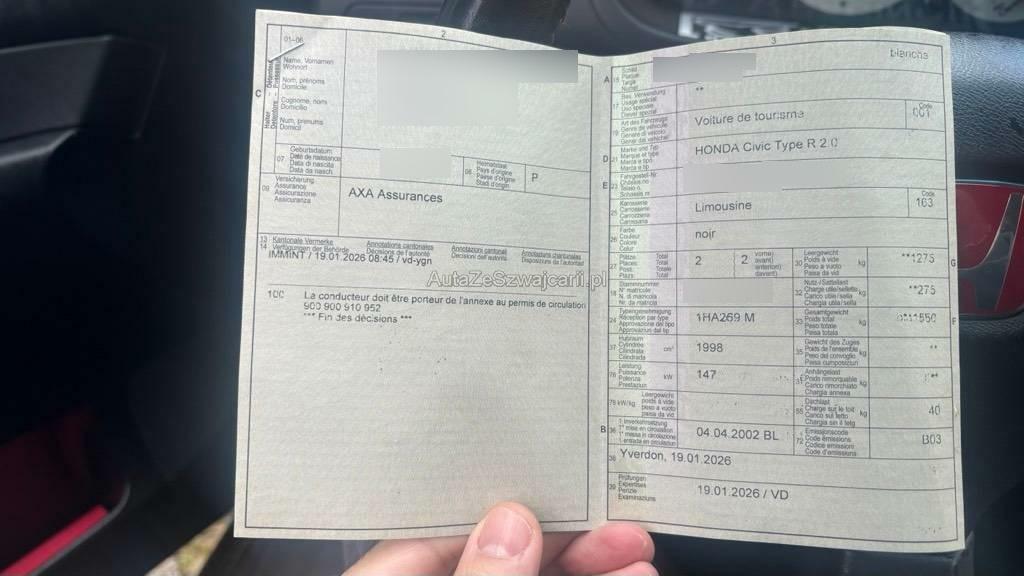 2
01-06
Name, Vornamen
Wohnort
Nom, prénoms
Domicile
Cognome, nomi
Domicilio
Num, prenums
Domicil
C
07
Geburtsdatum
Date de naissance
Data di nascita
Data da nasch.
08
Heimatstaat
Pays d'origine
Paese d'origine
Stadi d'origin
P
09
Versicherung
Assurance
Assicurazione
Assicuranza
AXA Assurances
13 Kantonale Vermerke Annotations cantonales Annotazioni cantonali Annotaziuns chantunalas
14 Verfügungen der Behörde Décisions de l'autorité Decisioni dell'autorità Disposiziuns da l'autoritad
IMMINT / 19.01.2026 08:45 / vd-ygn
AutaZeSzwajcarii.pl
100 La conducteur doit être porteur de l'annexe au permis de circulation
900 900 910 952
*** Fin des décisions ***
3
A 15
Schild
Plaque
Targa
Numer
blanche
17
Bes. Verwendung
Usage spécial
Uso speciale
Diever spezial
**
19
Art des Fahrzeugs
Genre de véhicule
Genere di veicolo
Gener da vehichel
Voiture de tourisme
Code
001
D 21
Marke und Typ
Marque et type
Marca e tipo
Marca e tip
HONDA Civic Type R 2.0
E 23
Fahrgestell-Nr.
Châssis no
Telaio n.
Schassis nr.
25
Karosserie
Carrosserie
Carrozzeria
Carossaria
Limousine
Code
163
26
Farbe
Couleur
Colore
Colur
noir
27
Plätze: Total
Places: Total
Posti: Totale
Plazs: Total
2
2
vorne)
avant)
anteriori)
davant)
30
Leergewicht
Poids à vide
Peso a vuoto
Paisa da vid
kg
**1275
G
18
Stammnummer
N° matricule
N. di matricola
Nr. da matricla
32
Nutz-/Sattellast
Charge utile/sellette
Carico utile/sella
Chargia utila/sella
kg
**275
24
Typengenehmigung
Réception par type
Approvazione del tipo
Approvaziun dal tip
1HA269 M
33
Gesamtgewicht
Poids total
Peso totale
Paisa totala
kg
**1550
F
37
Hubraum
Cylindrée
Cilindrata
Cilindrada
cm³
1998
35
Gewicht des Zuges
Poids de l'ensemble
Peso del convoglio
Paisa cumposiziun
kg
**
76
Leistung
Puissance
Potenza
Prestaziun
kW
147
31
Anhängelast
Poids remorquable
Carico rimorchiato
Chargia annexa
kg
78 kW/kg
Leergewicht
poids à vide
peso a vuoto
paisa da vid
55
Dachlast
Charge sur le toit
Carico sul tetto
Chargia sin il tetg
kg
40
B 36
1. Inverkehrsetzung
1re mise en circulation
1a messa in circolazione
1. entrada en circulaziun
04.04.2002 BL
72
Emissionscode
Code émissions
Codice emissioni
Code d'emissiuns
B03
38
Yverdon, 19.01.2026
39
Prüfungen
Expertises
Perizie
Examinaziuns
19.01.2026 / VD